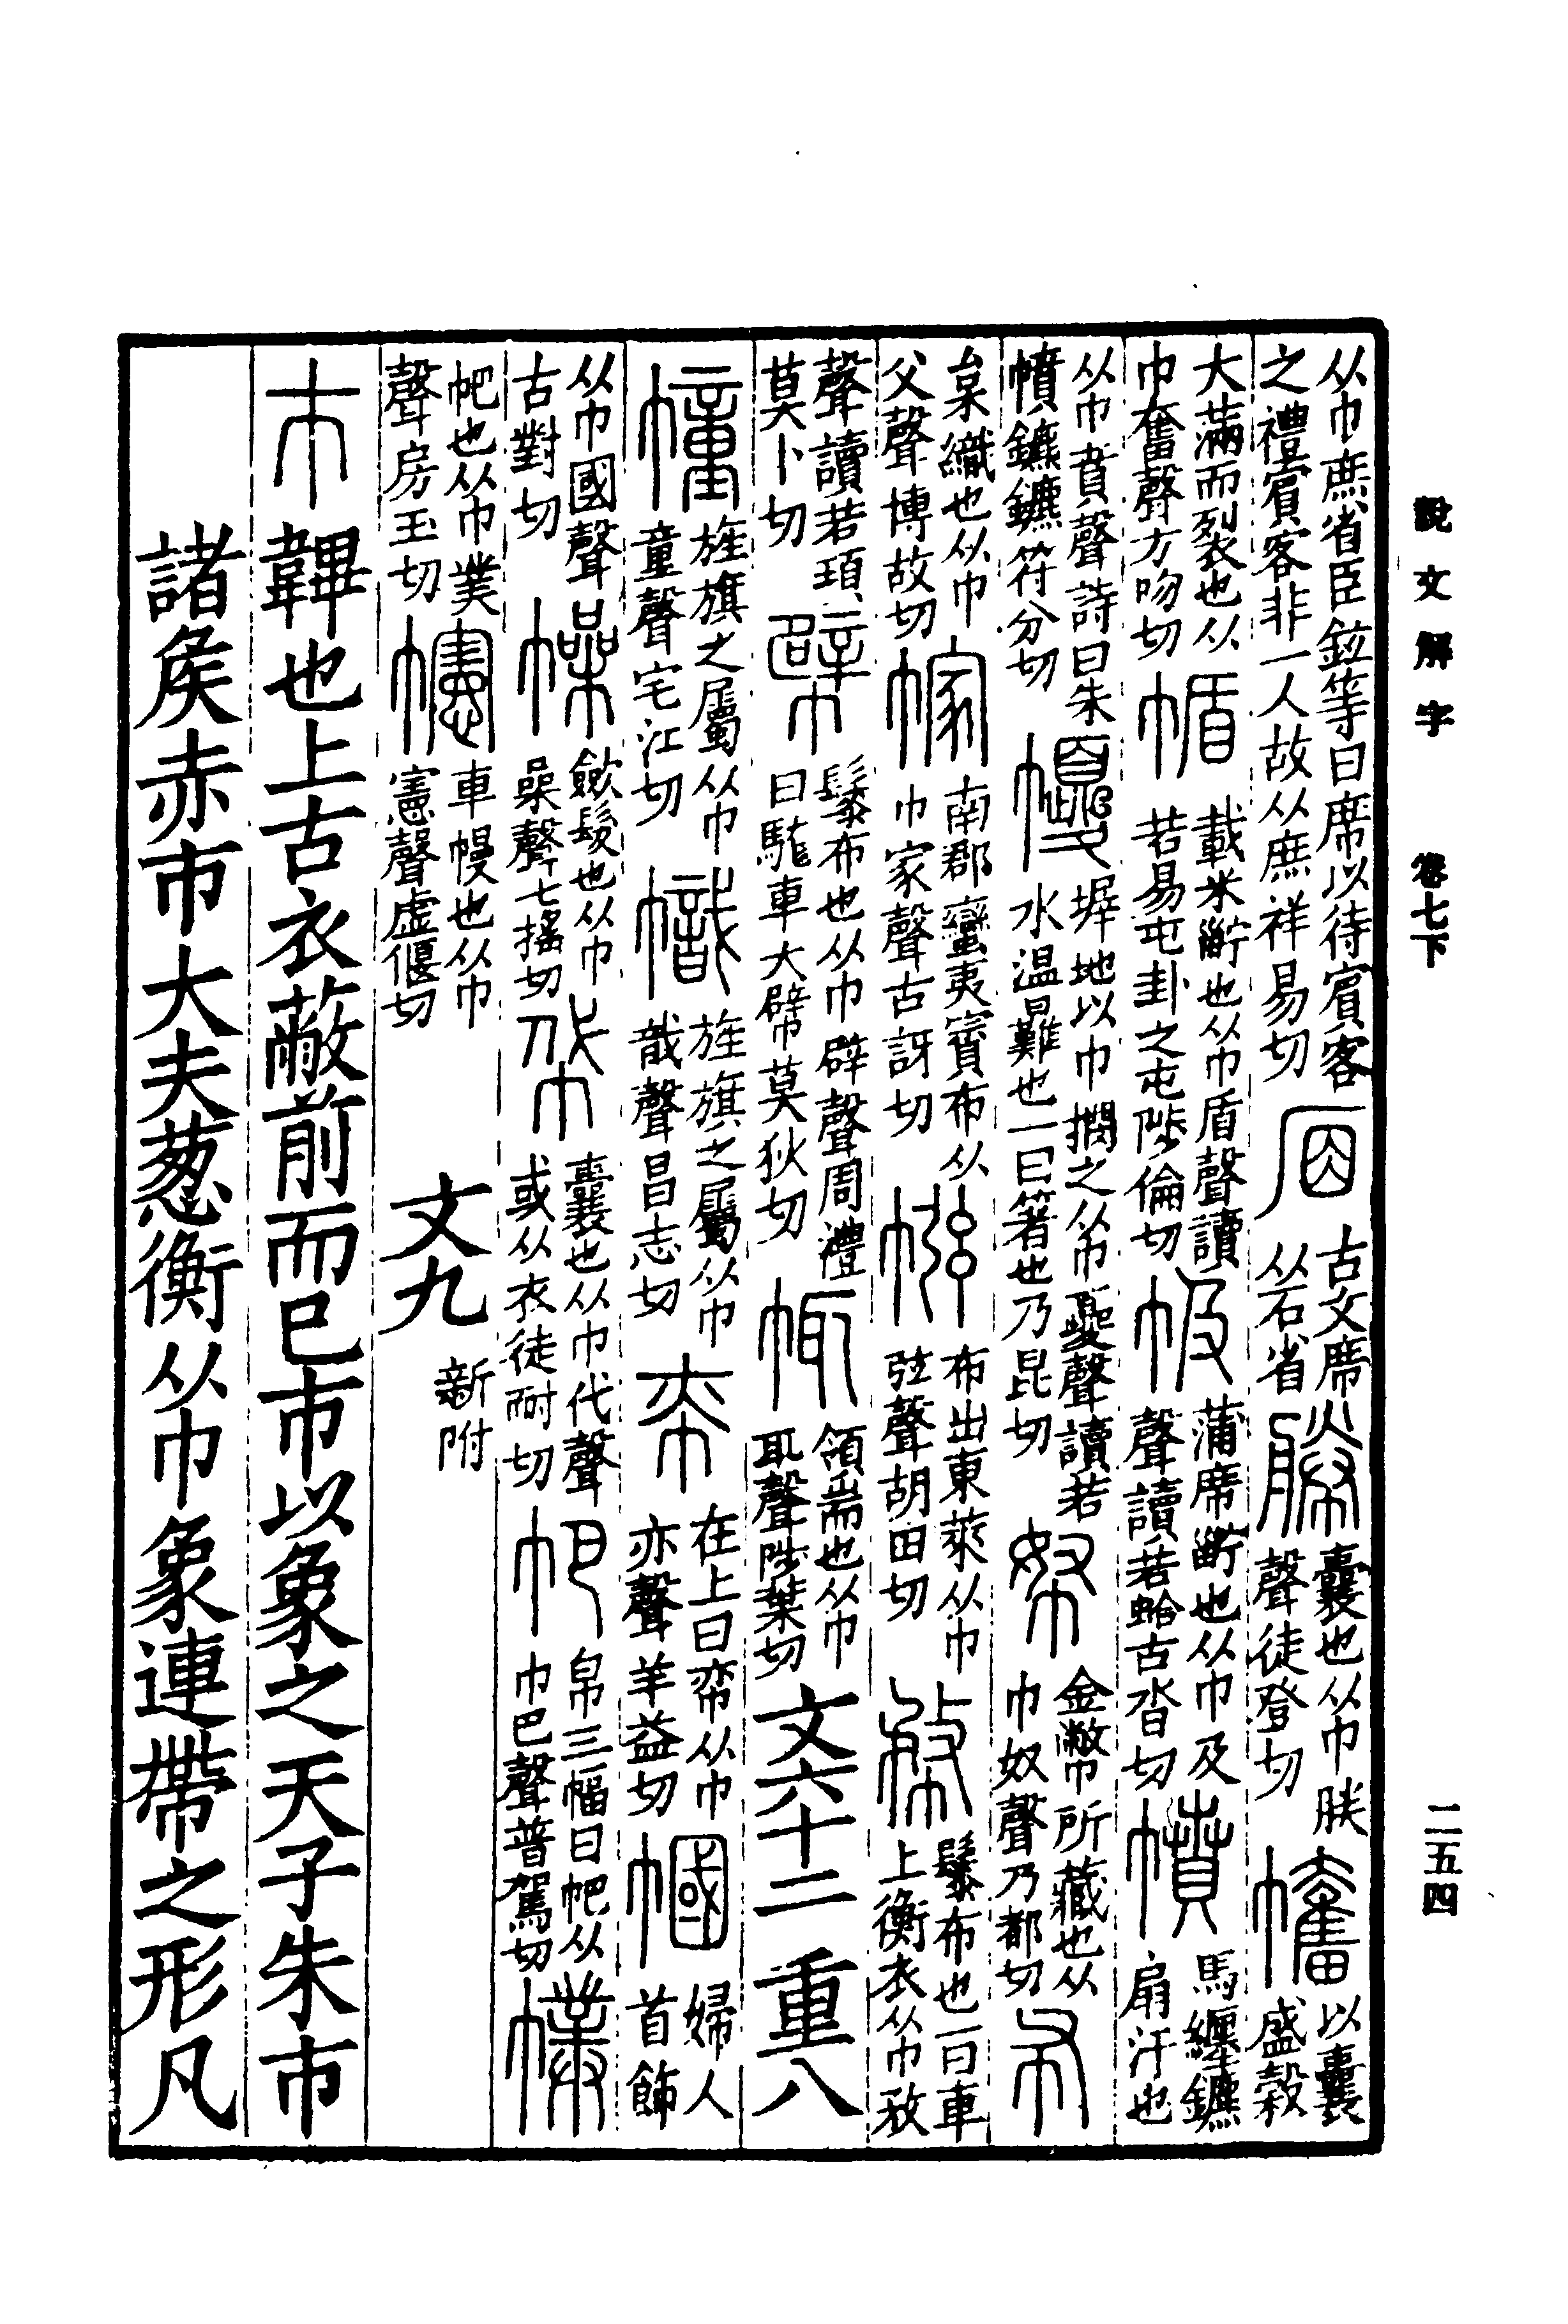 說文解字 卷七下 二五四
从巾庶省臣鉉等曰席以待賓客之禮賓客非一人故从庶祥易切 𠩇 古文席从石省 幐 囊也从巾朕聲徒登切 㡒 以囊盛穀
大滿而裂也从巾奮聲方吻切 㡒 載米𣁋也从巾盾聲讀若易屯卦之屯陟倫切 㠷 蒲席𣁋也从巾及聲讀若蛤古沓切 幩 馬纏鑣扇汗也
从巾賁聲詩曰朱幩鑣鑣符分切 墀地以巾㨉之从巾夒聲讀若水温㬮也一曰箸也乃昆切 帑 金幣所藏也从巾奴聲乃都切 布
枲織也从巾父聲博故切 幏 南郡蠻夷賨布从巾家聲古訝切 布出東萊从巾弦聲胡田切 䰍布也一曰車上衡衣从巾敄
聲讀若頊莫卜切 幦 䰍布也从巾辟聲周禮曰駹車大幦莫狄切 㡇 領耑也从巾耴聲陟葉切 文六十二 重八
幢 旌旗之屬从巾童聲宅江切 幟 旌旗之屬从巾戠聲昌志切 帟 在上曰帟从巾亦聲羊益切 幗 婦人首飾
从巾國聲古對切 幧 斂髮也从巾喿聲七搖切 帒 囊也从巾代聲或从衣徒耐切 帊 帛三幅曰帊从巾巴聲普駕切 幞
帊也从巾菐聲房玉切 幰 車幔也从巾憲聲虛偃切 文九 新附
巿 韠也上古衣蔽前而已巿以象之天子朱巿
諸矦赤巿大夫葱衡从巾象連帶之形凡